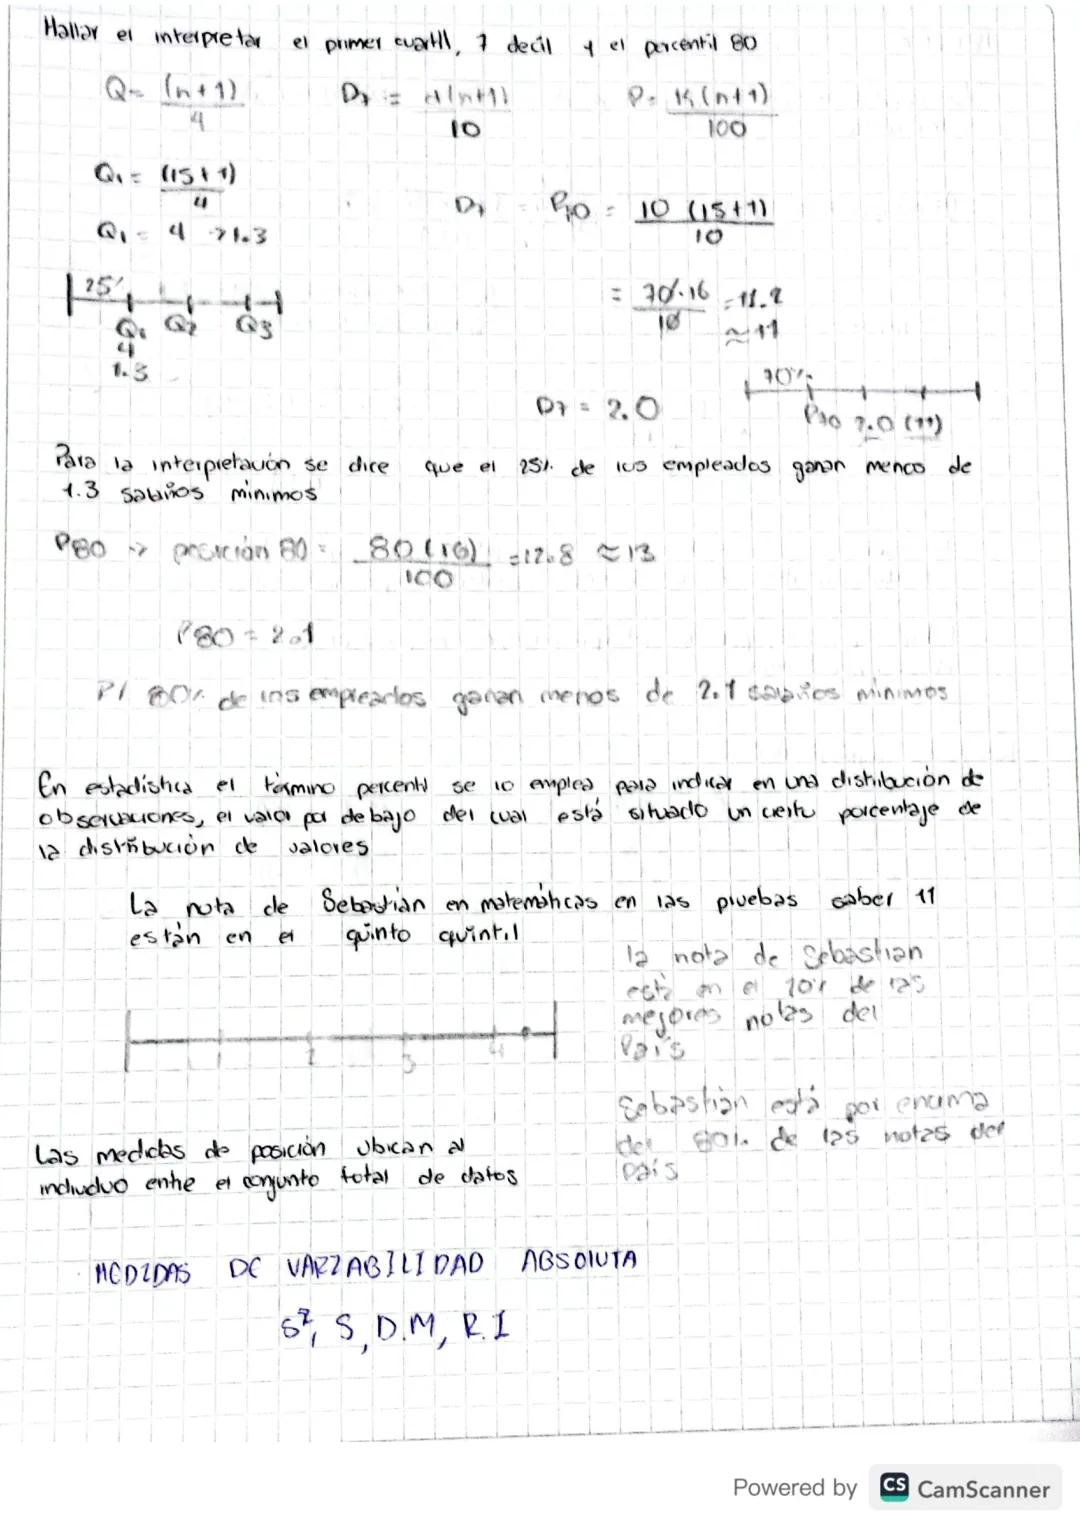 Hallar el interpretar el primer cuartil, 7 decil y el percentil 80
Q= (n+1)/4 D7 = d(n+1)/10 P= K(n+1)/100
Q1= (15+1)/4
D7 P70 = 10 (15+1)/10
Q1= 4 → 1.3
25%
= 70·16/10 = 11.2
≈ 11
Q1 Q2 Q3
4
1.3
70%
D7 = 2.0
P70 2.0 (11)
Para la interpretación se dice que el 25% de los empleados ganan menco de
1.3 salarios minimos
P80 → posición 80 = 80(16)/100 = 12.8 ≈ 13
P80 = 2.1
P/ 80% de los empleados ganan menos de 2.1 salarios minimos
En estadística el término percentil se lo emplea para indicar en una distribución de
observaciones, el valor por debajo del cual está situado un cierto porcentaje de
la distribución de valores
La nota de Sebastián en matemáticas en las pruebas saber 11
están en el quinto quintil
la nota de Sebastian
está en el 20% de las
mejores notas del
País
1 2 3 4
Sebastián está por encima
del 80% de las notas del
país
Las medidas de posición ubican al
individuo entre el conjunto total de datos
MEDIDAS DE VARIABILIDAD ABSOLUTA
S², S, D.M, R.I
Powered by CS CamScanner